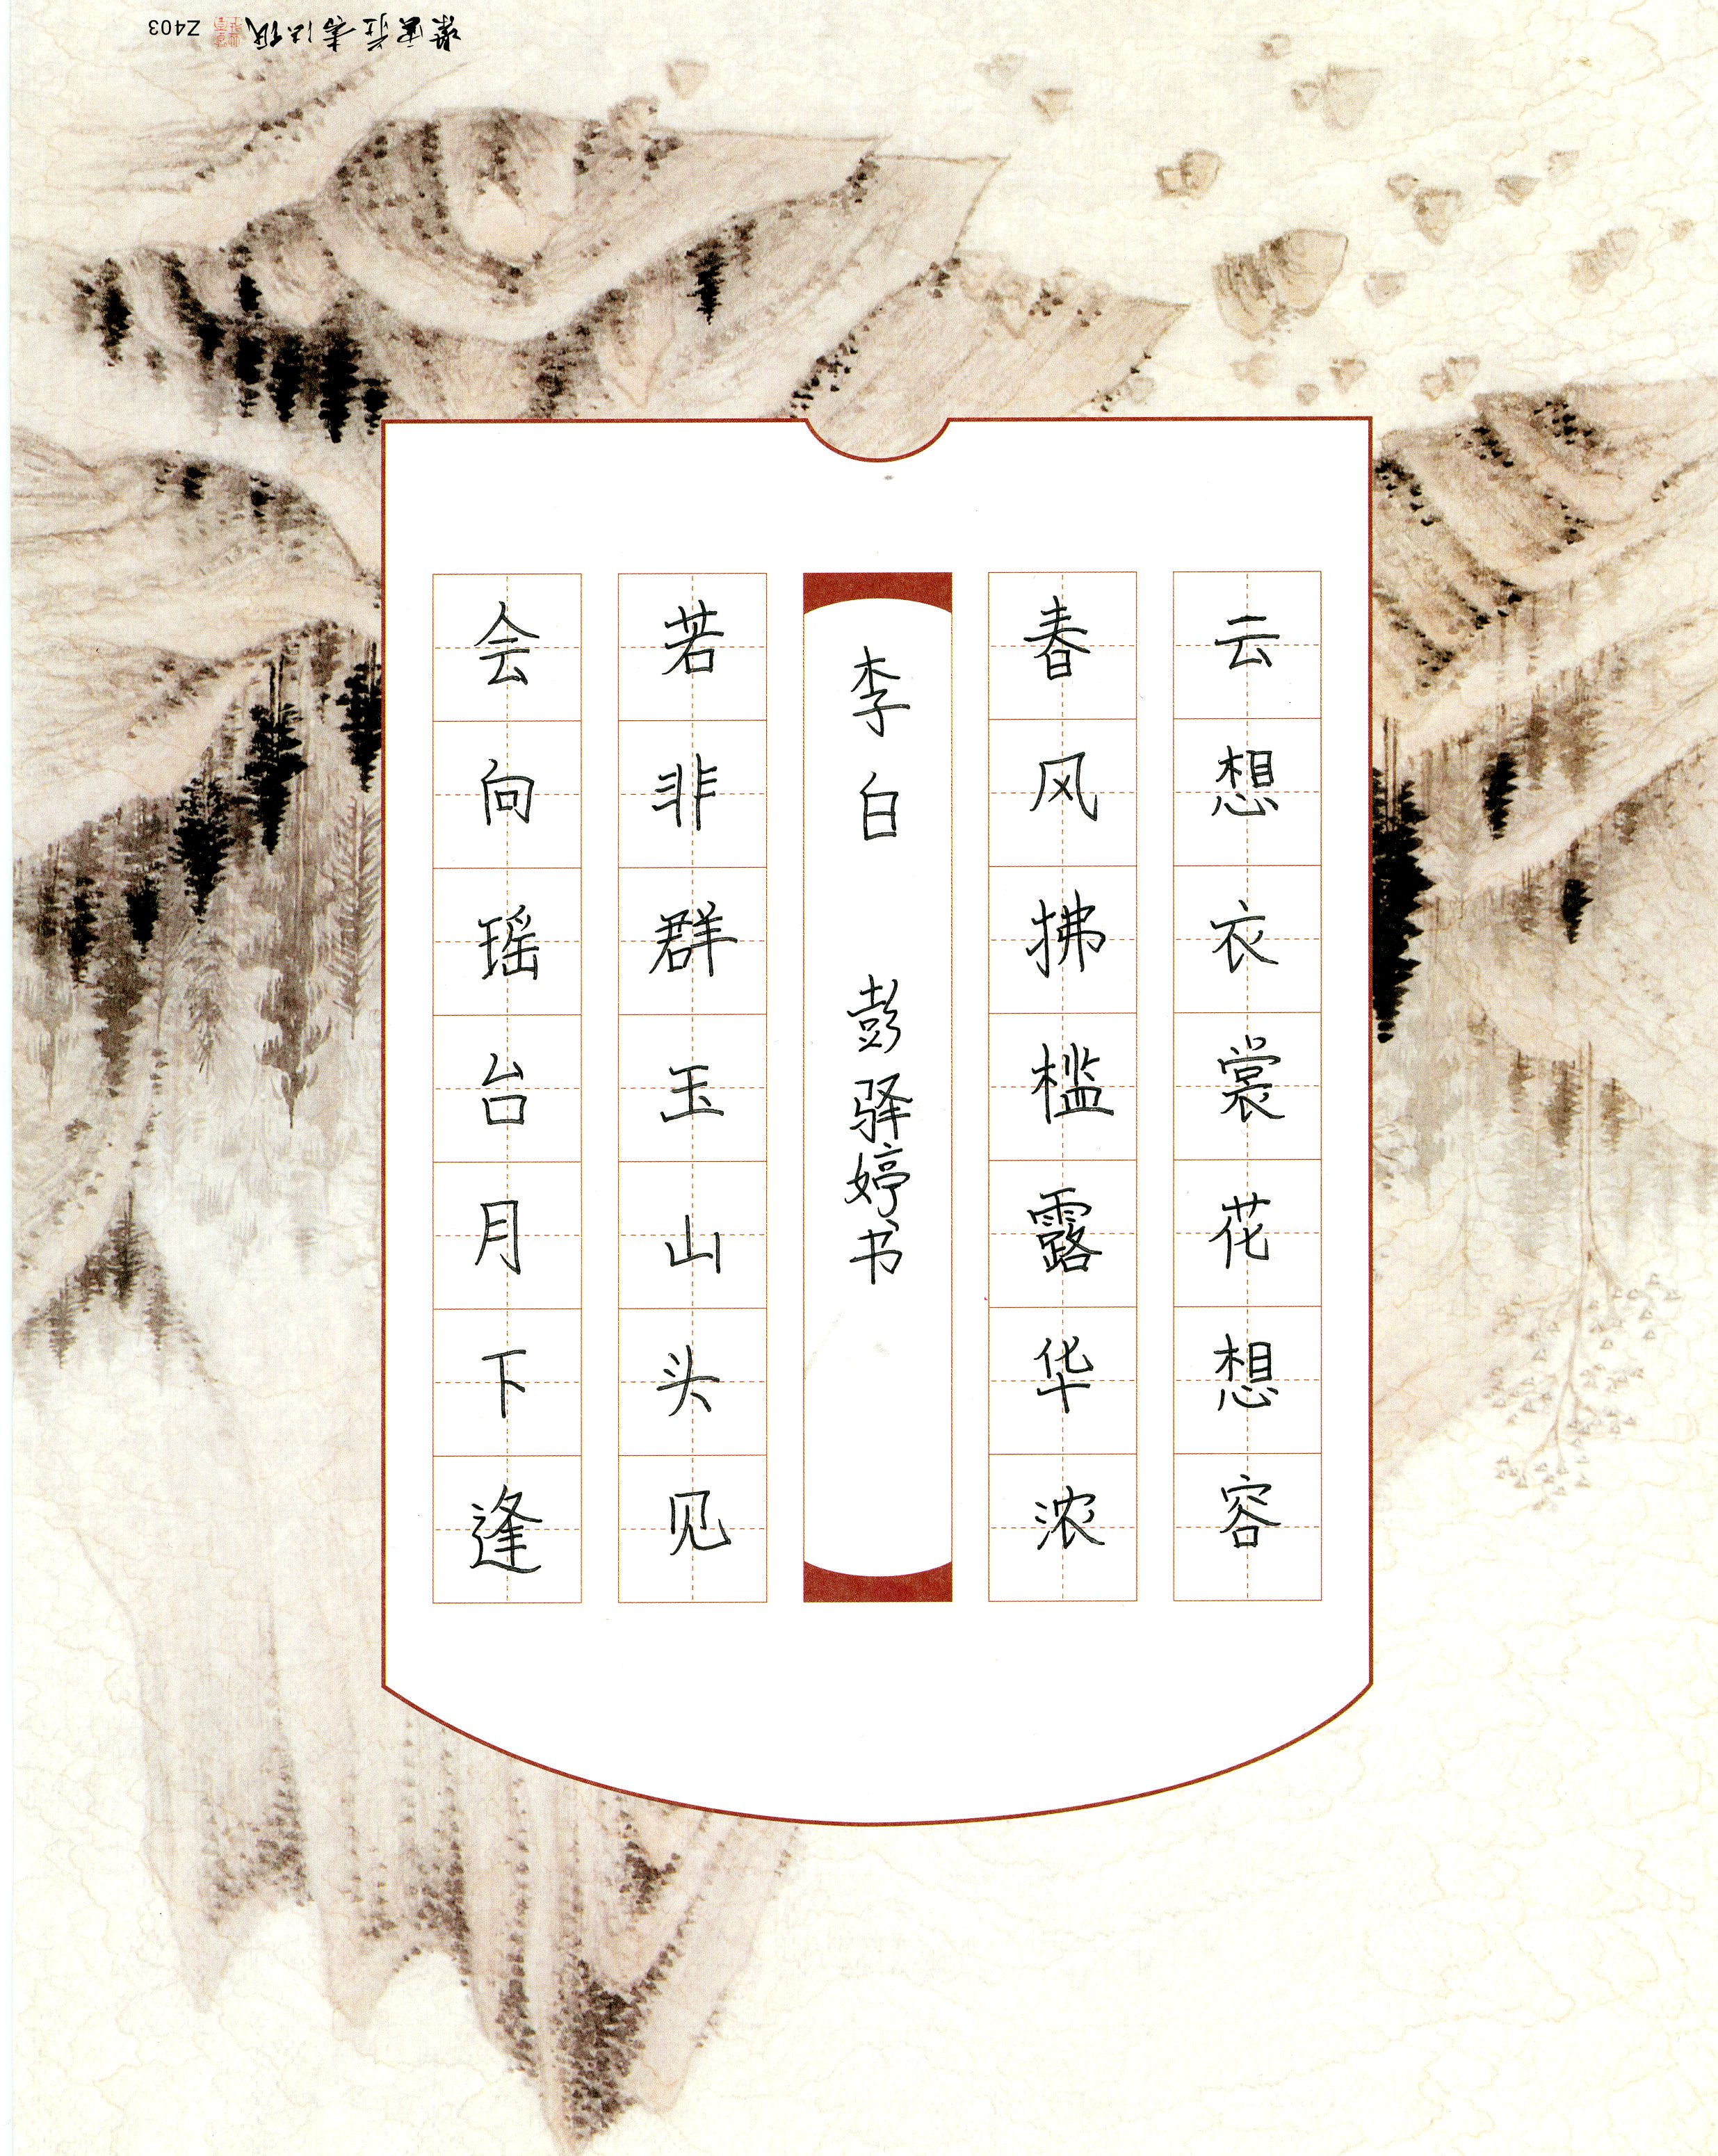 云想衣裳花想容
春风拂槛露华浓
李白 彭驿婷书
若非群玉山头见
会向瑶台月下逢
Z403